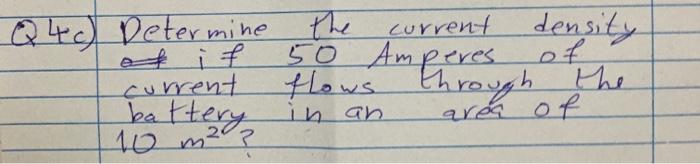 Q4c) Determine the current density
if 50 Amperes of
current flows through the
battery in an area of
10 m²?